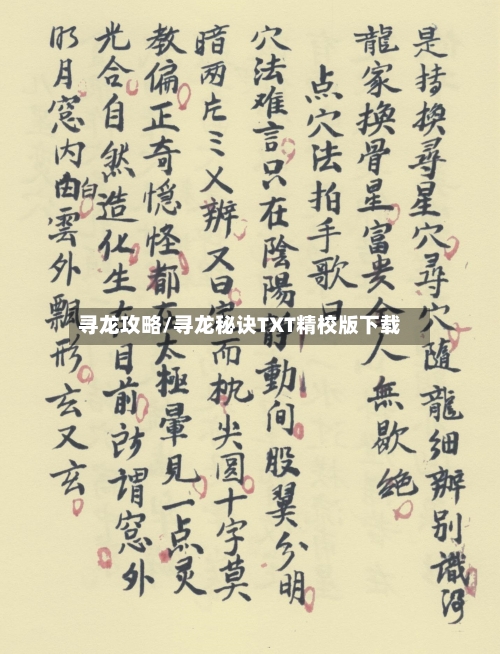 是持换尋星穴尋穴隨龍细辨别識得
龍家換骨星富贵令人無歇绝
点穴法拍手歌曰
穴法难言只在陰陽 動间股翼分明
暗两片三叉辨又曰 而枕尖圆十字莫
教偏正奇憶怪都 太極暈見一点灵
光合自然造化生 目前所谓窓外
明月窓内白雲雲外飄形玄又玄
寻龙攻略/寻龙秘诀TXT精校版下载